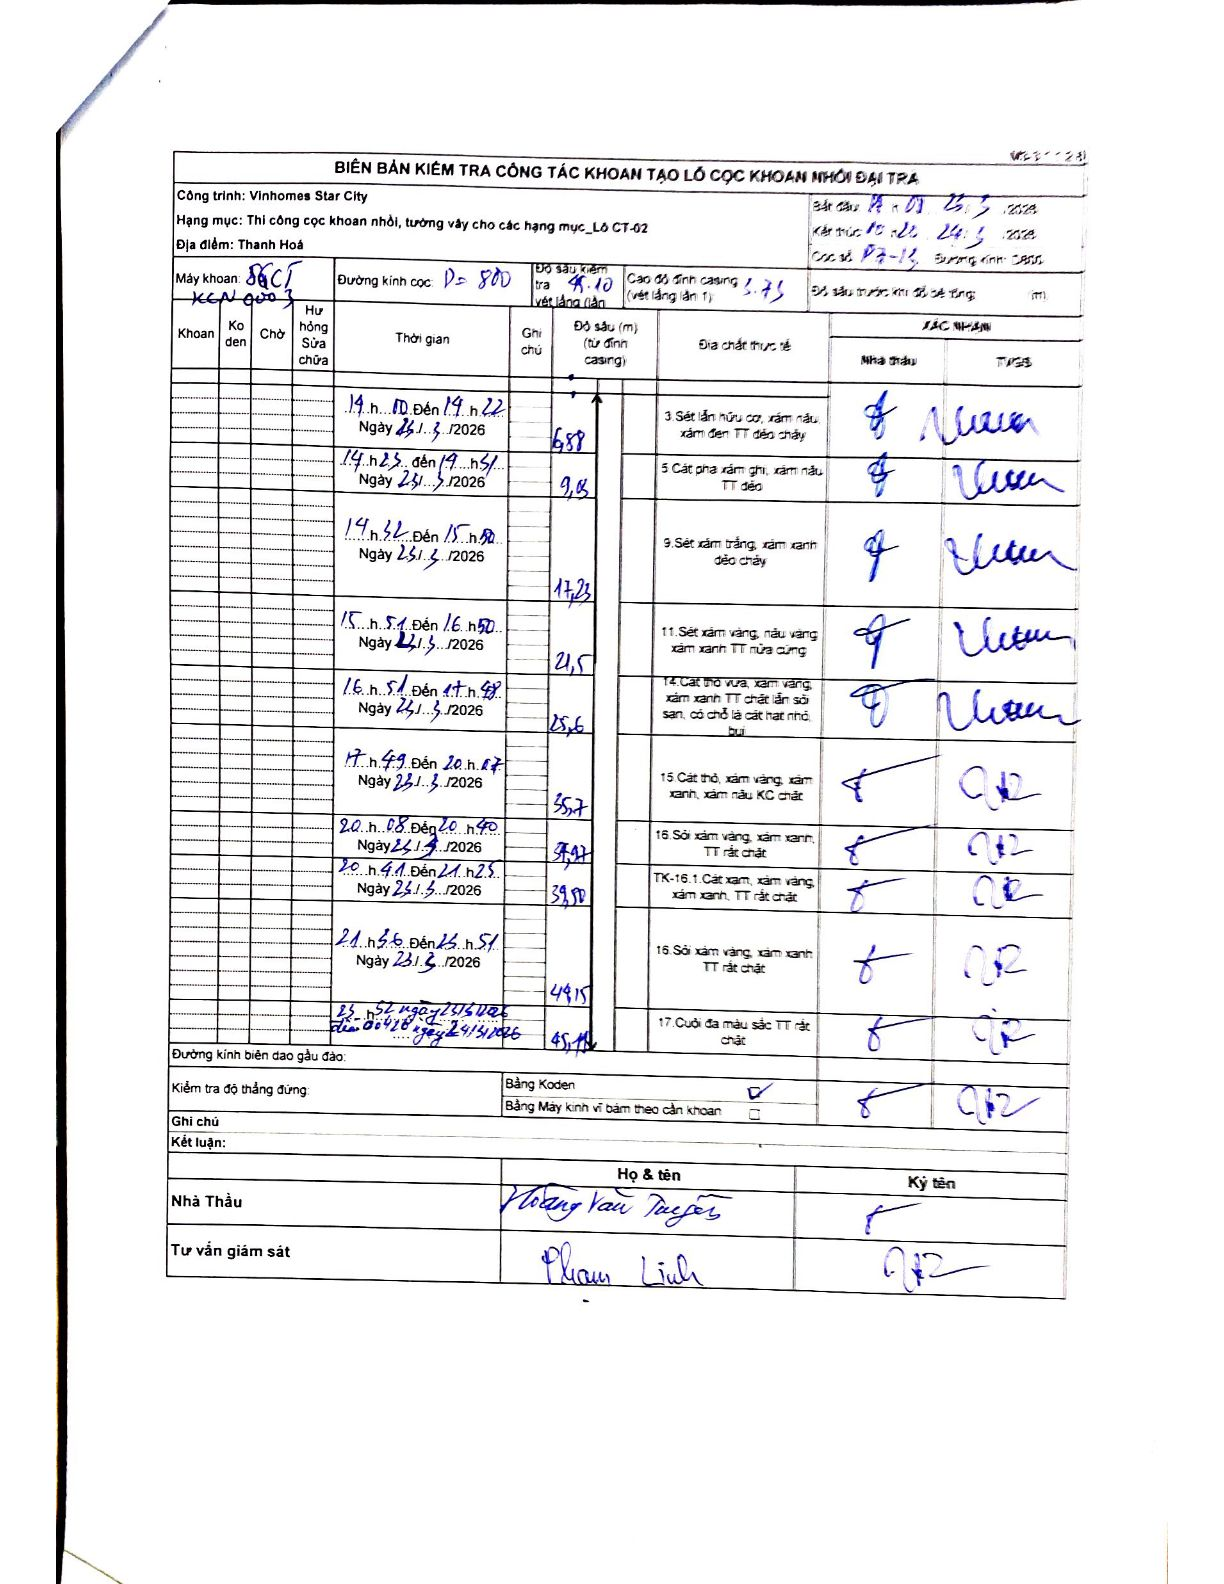 BIÊN BẢN KIỂM TRA CÔNG TÁC KHOAN TẠO LỖ CỌC KHOAN NHỒI ĐẠI TRÀ
Công trình: Vinhomes Star City
Hạng mục: Thi công cọc khoan nhồi, tường vây cho các hạng mục_Lô CT-02
Địa điểm: Thanh Hoá
Bắt đầu 23/3 /2026
Kết thúc 24/3 /2026
Cọc số Đường kính:
Máy khoan:
Đường kính cọc: D= 800
Độ sâu kiểm tra vét lắng (lần
Cao độ đỉnh casing (vét lắng lần 1):
Độ sâu trước khi đổ bê tông: (m)
Khoan
Ko đen
Chờ
Hư hỏng Sửa chữa
Thời gian
Ghi chú
Độ sâu (m) (từ đỉnh casing)
Địa chất thực tế
XÁC NHẬN
Nhà thầu
TVGS
14 h 10 Đến 14 h 22
Ngày 23/3/2026
6,88
3.Sét lẫn hữu cơ, xám nâu, xám đen TT dẻo chảy
14 h 23 đến 14 h 31
Ngày 23/3/2026
9,03
5.Cát pha xám ghi, xám nâu TT dẻo
14 h 32 Đến 15 h 50
Ngày 23/3/2026
17,23
9.Sét xám trắng, xám xanh dẻo chảy
15 h 51 Đến 16 h 50
Ngày 23/3/2026
21,5
11.Sét xám vàng, nâu vàng xám xanh TT nửa cứng
16 h 51 Đến 17 h 48
Ngày 23/3/2026
25,6
14.Cát thô vừa, xám vàng, xám xanh TT chặt lẫn sỏi sạn, có chỗ là cát hạt nhỏ, bụi
17 h 49 Đến 20 h 07
Ngày 23/3/2026
35,7
15.Cát thô, xám vàng, xám xanh, xám nâu KC chặt
20 h 08 Đến 20 h 40
Ngày 23/3/2026
16.Sỏi xám vàng, xám xanh, TT rất chặt
20 h 41 Đến 21 h 25
Ngày 23/3/2026
39,50
TK-16.1.Cát xám, xám vàng, xám xanh, TT rất chặt
21 h 36 Đến 23 h 51
Ngày 23/3/2026
44,15
16.Sỏi xám vàng, xám xanh TT rất chặt
23 h 52 ngày 23/3/2026
đến 00h28 ngày 24/3/2026
17.Cuội đa màu sắc TT rất chặt
Đường kính biên dao gầu đào:
Kiểm tra độ thẳng đứng:
Bằng Koden
Bằng Máy kinh vĩ bám theo cần khoan
Ghi chú
Kết luận:
Họ & tên
Ký tên
Nhà Thầu
Hoàng Văn Tuyến
Tư vấn giám sát
Phạm Linh